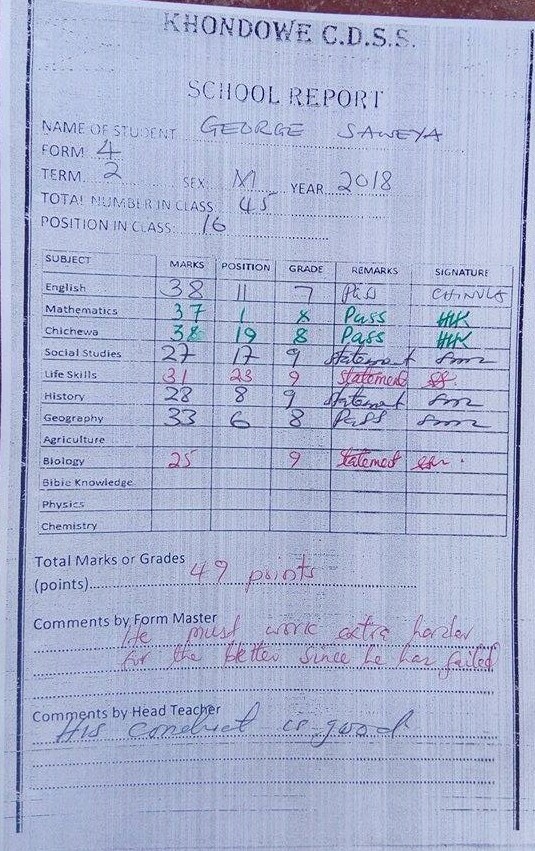 KHONDOWE C.D.S.S.
SCHOOL REPORT
NAME OF STUDENT GEORGE SAWEYA
FORM 4
TERM 2 SEX M YEAR 2018
TOTAL NUMBER IN CLASS 45
POSITION IN CLASS 16
SUBJECT MARKS POSITION GRADE REMARKS SIGNATURE
English 38 11 7 Pass CHINULA
Mathematics 37 1 8 Pass HK
Chichewa 38 19 8 Pass HK
Social Studies 27 17 9 statement
Life Skills 31 23 9 Statement
History 28 8 9 statement
Geography 33 6 8 Pass
Agriculture
Biology 25 9 Statement
Bible Knowledge
Physics
Chemistry
Total Marks or Grades
(points) 49 points
Comments by Form Master
He must work extra harder
for the better since he has failed
Comments by Head Teacher
His conduct is good